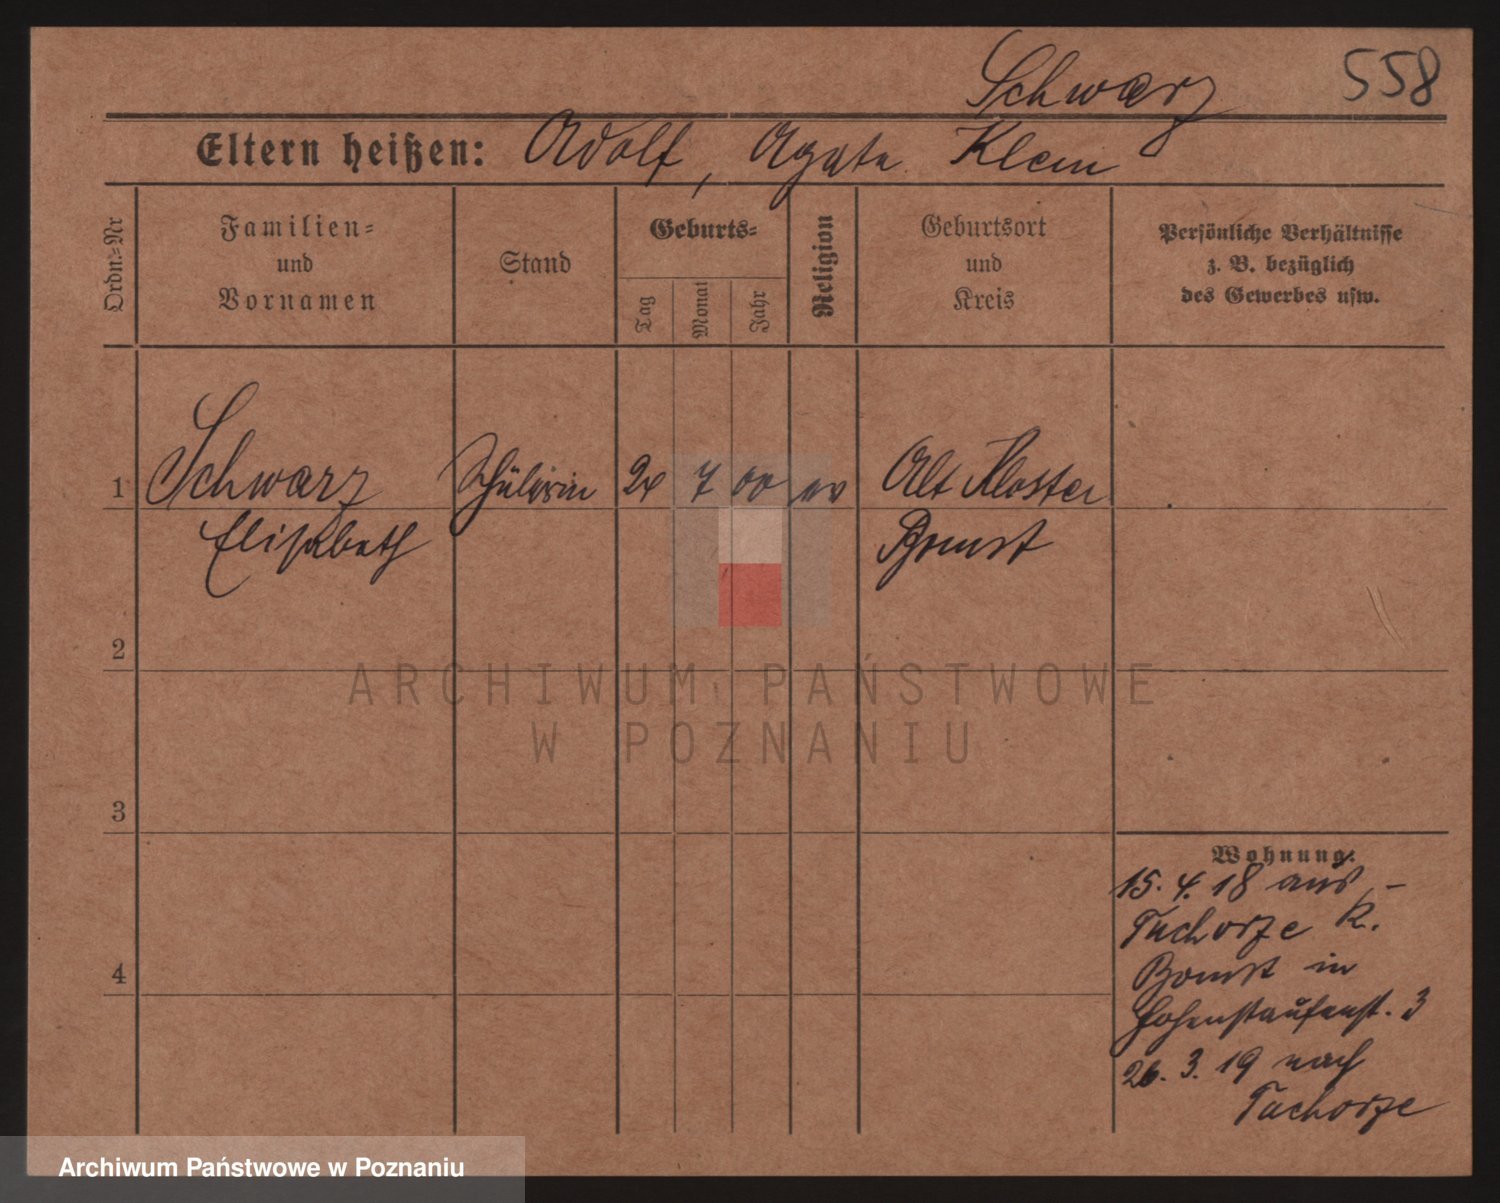 Schwarz 558
Eltern heißen: Adolf, Agate Klein
Ordn=Nr
Familien=
und
Vornamen
Stand
Geburts=
Tag
Monat
Jahr
Religion
Geburtsort
und
Kreis
Persönliche Verhältnisse
z. B. bezüglich
des Gewerbes usw.
1 Schwarz Schülerin 7 00 ev Alt Kloster
Elisabeth Bomst
2
3
4
Wohnung.
15. 4. 18 aus -
Tuchorze K.
Bomst in
Hohenstaufenst. 3
26. 3. 19 nach
Tuchorze
ARCHIWUM PAŃSTWOWE
W POZNANIU
Archiwum Państwowe w Poznaniu